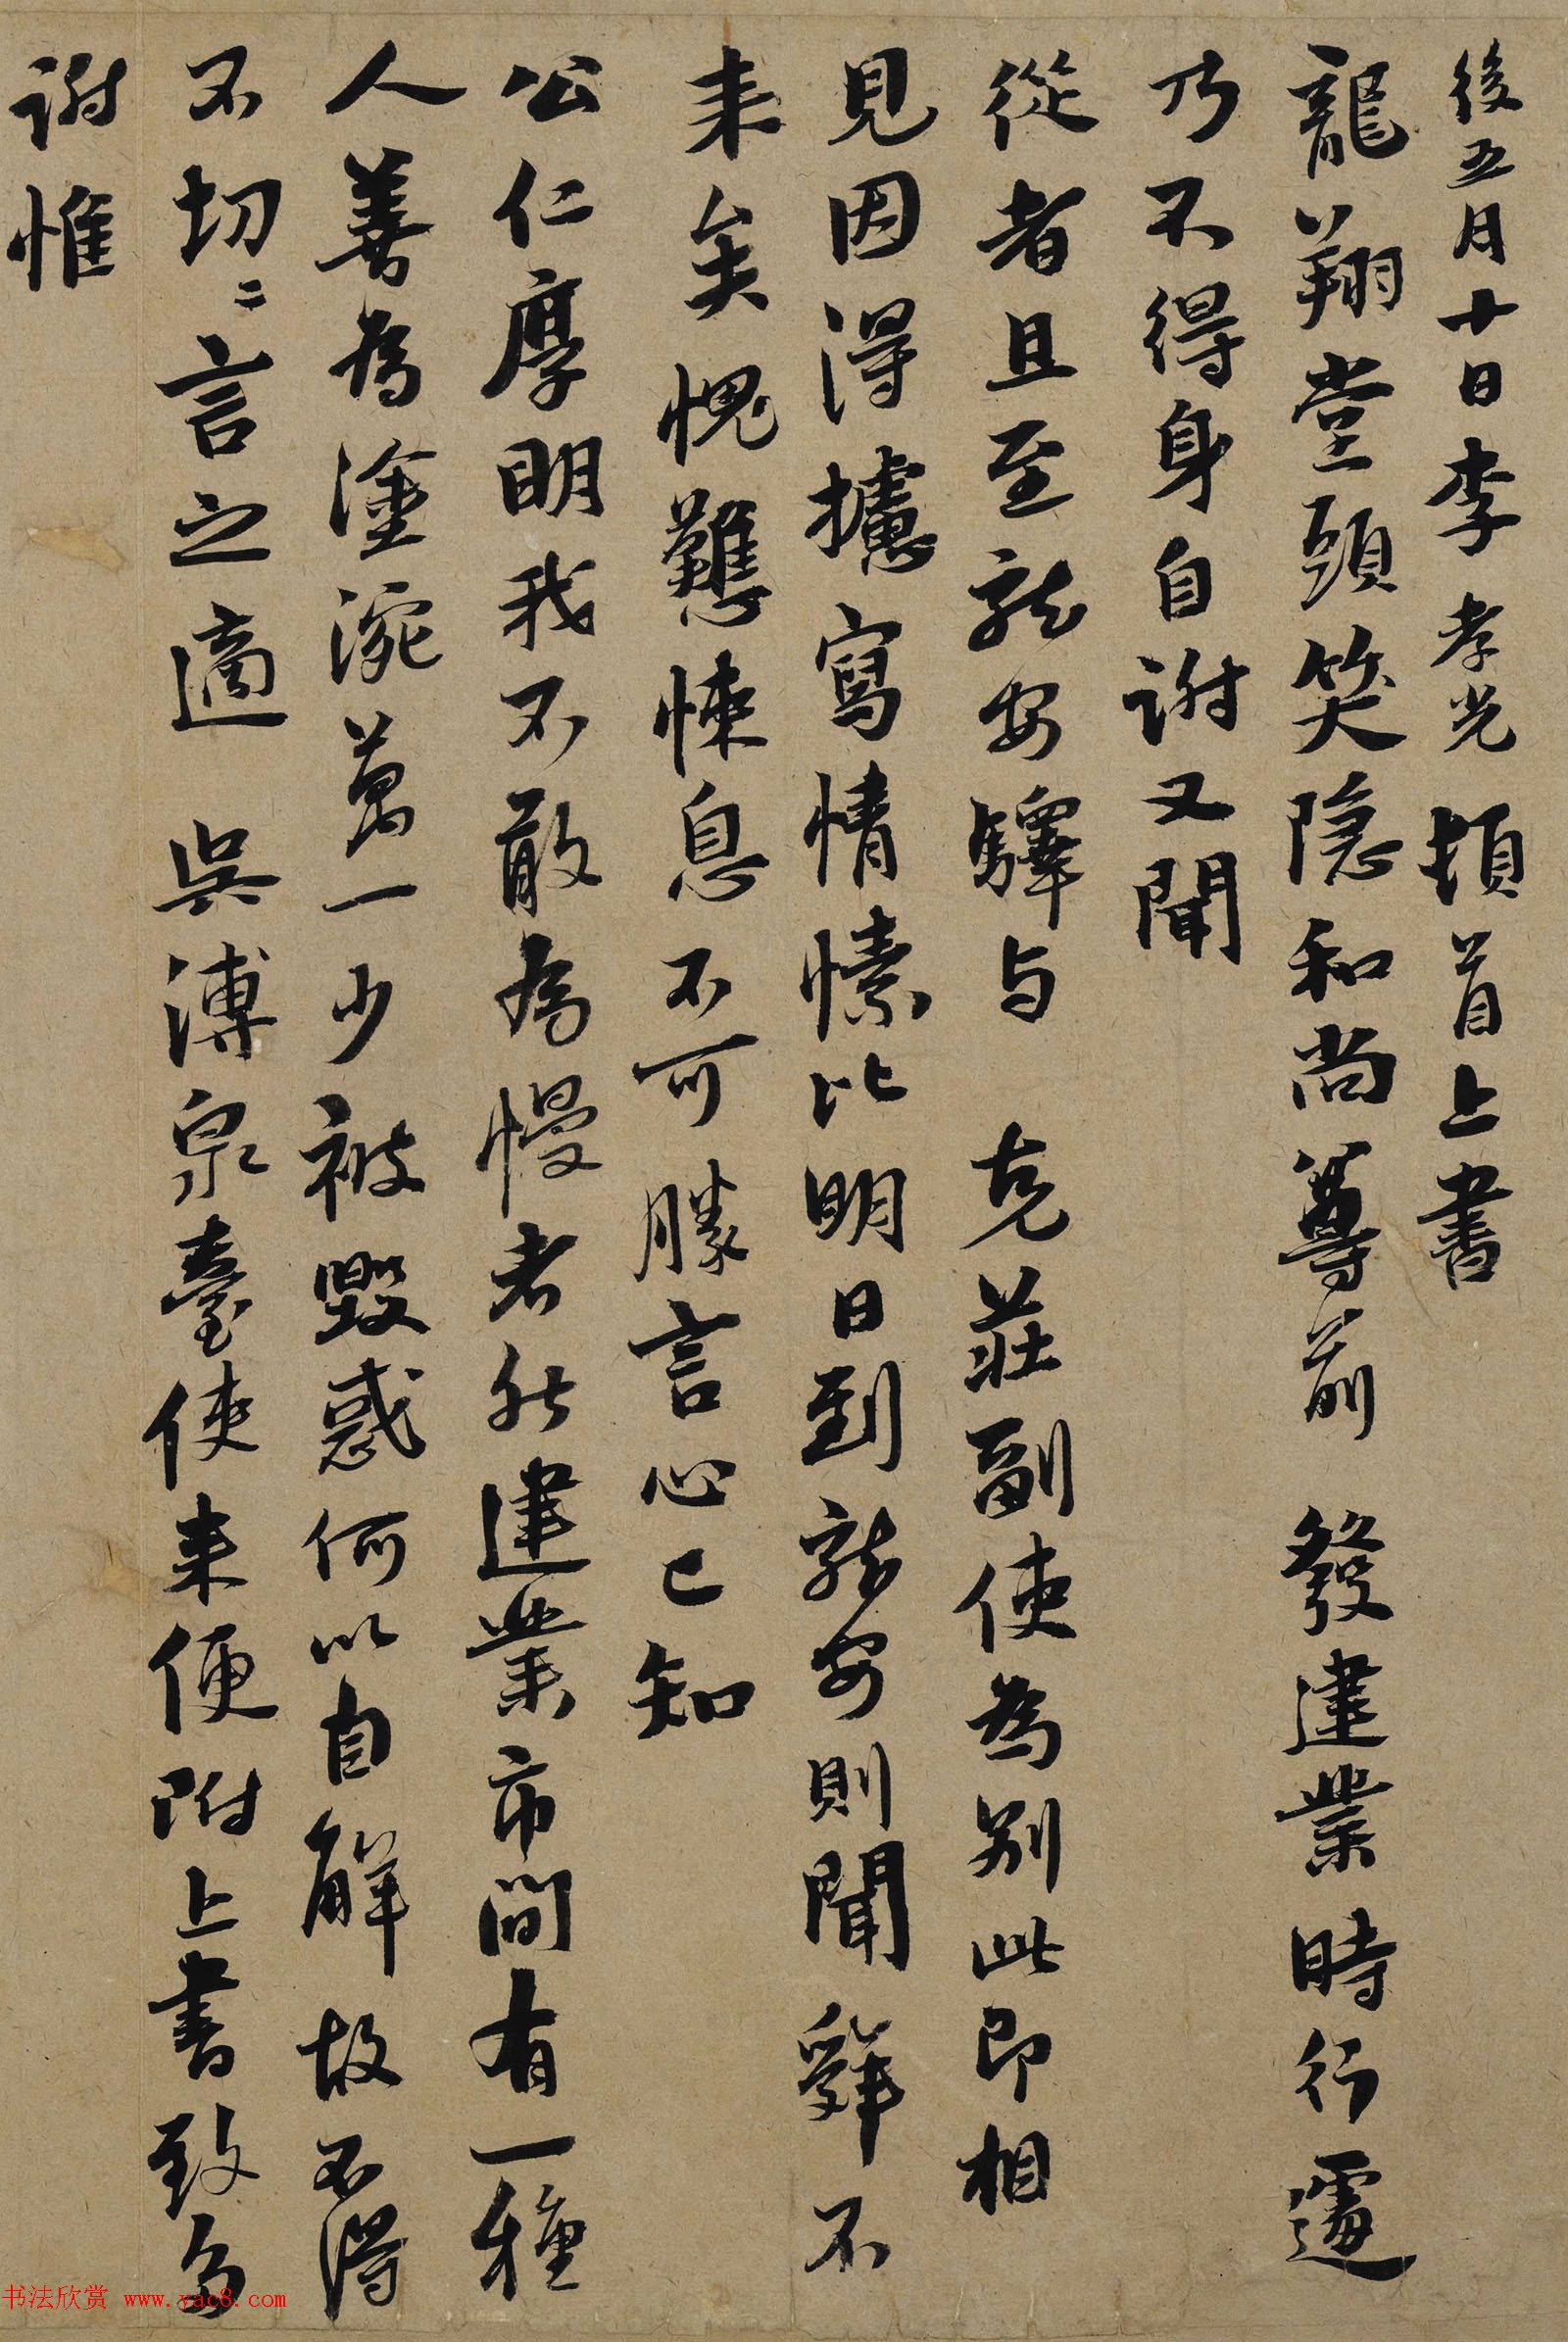 後五月十日李孝光頓首上書
龍翔堂頭笑隠和尚尊前　發建業時行遽
乃不得身自謝又聞
從者且至龍安驛与　克莊副使為別此即相
見因得攄寫情愫比明日到龍安則聞辭不
来矣愧戁悚息不可勝言心已知
公仁厚明我不敢為慢者然建業市間有一種
人善為塗涴萬一少被毀惑何以自解故不得
不切〻言之適　吳溥泉臺使来便附上書致多
謝惟
书法欣赏 www.yac8.com